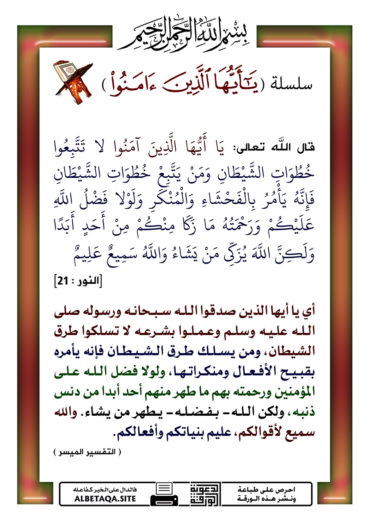 بسم الله الرحمن الرحيم
سلسلة ( يَـٰٓأَيُّهَا ٱلَّذِينَ ءَامَنُوا۟ )
قال الله تعالى: يَا أَيُّهَا الَّذِينَ آمَنُوا لا تَتَّبِعُوا
خُطُوَاتِ الشَّيْطَانِ وَمَنْ يَتَّبِعْ خُطُوَاتِ الشَّيْطَانِ
فَإِنَّهُ يَأْمُرُ بِالْفَحْشَاءِ وَالْمُنْكَرِ وَلَوْلا فَضْلُ اللَّهِ
عَلَيْكُمْ وَرَحْمَتُهُ مَا زَكَا مِنْكُمْ مِنْ أَحَدٍ أَبَدًا
وَلَكِنَّ اللَّهَ يُزَكِّي مَنْ يَشَاءُ وَاللَّهُ سَمِيعٌ عَلِيمٌ
[النور : 21]
أي يا أيها الذين صدقوا الله سبحانه ورسوله صلى
الله عليه وسلم وعملوا بشرعه لا تسلكوا طرق
الشيطان، ومن يسلك طرق الشيطان فإنه يأمره
بقبيح الأفعال ومنكراتها، ولولا فضل الله على
المؤمنين ورحمته بهم ما طهر منهم أحد أبدا من دنس
ذنبه، ولكن الله - بفضله - يطهر من يشاء. والله
سميع لأقوالكم، عليم بنياتكم وأفعالكم.
( التفسير الميسر )
احرص على طباعة
ونشر هذه الورقة
الدعوية
الورقة
فالدال على الخير كفاعله
ALBETAQA.SITE